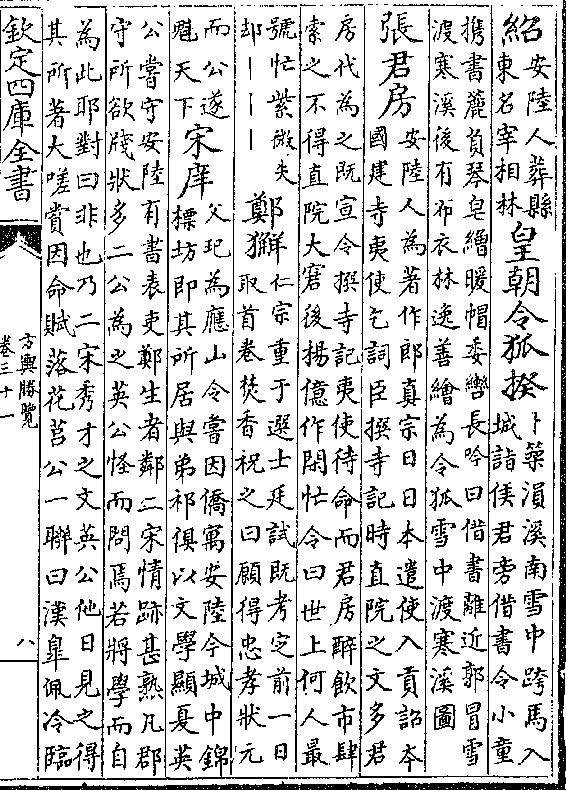 紹安陸人葬縣
東名宰相林
皇朝令狐揆卜築溳溪南雪中跨馬入
城詣侯君旁借書令小童
携書麓負琴皂繒暖帽委轡長吟曰借書離近郭冒雪
渡寒溪後有布衣林逸善繪為令狐雪中渡寒溪圖
張君房安陸人為著作郎真宗日日本遣使入貢詔本
國建寺夷使乞詞臣撰寺記時直院之文多君
房代為之既宣令撰寺記夷使待命而君房醉飲市肆
索之不得直院大窘後揚億作閑忙令曰世上何人最
號忙紫微失
却｜｜｜
鄭獬仁宗重于選士廷試既考定前一日
取首卷焚香祝之曰願得忠孝狀元
而公遂
魁天下
宋庠父玘為應山令嘗因僑寓安陸今城中錦
標坊即其所居與弟祁俱以文學顯夏英
公嘗守安陸有書表吏鄭生者鄰二宋情跡甚熟凡郡
守所欲牋狀多二公為之英公怪而問焉若將學而自
為此耶對曰非也乃二宋秀才之文英公他日見之得
其所著大嗟賞因命賦落花莒公一聯曰漢臯佩冷臨
欽定四庫全書
方輿勝覽
卷三十一
八